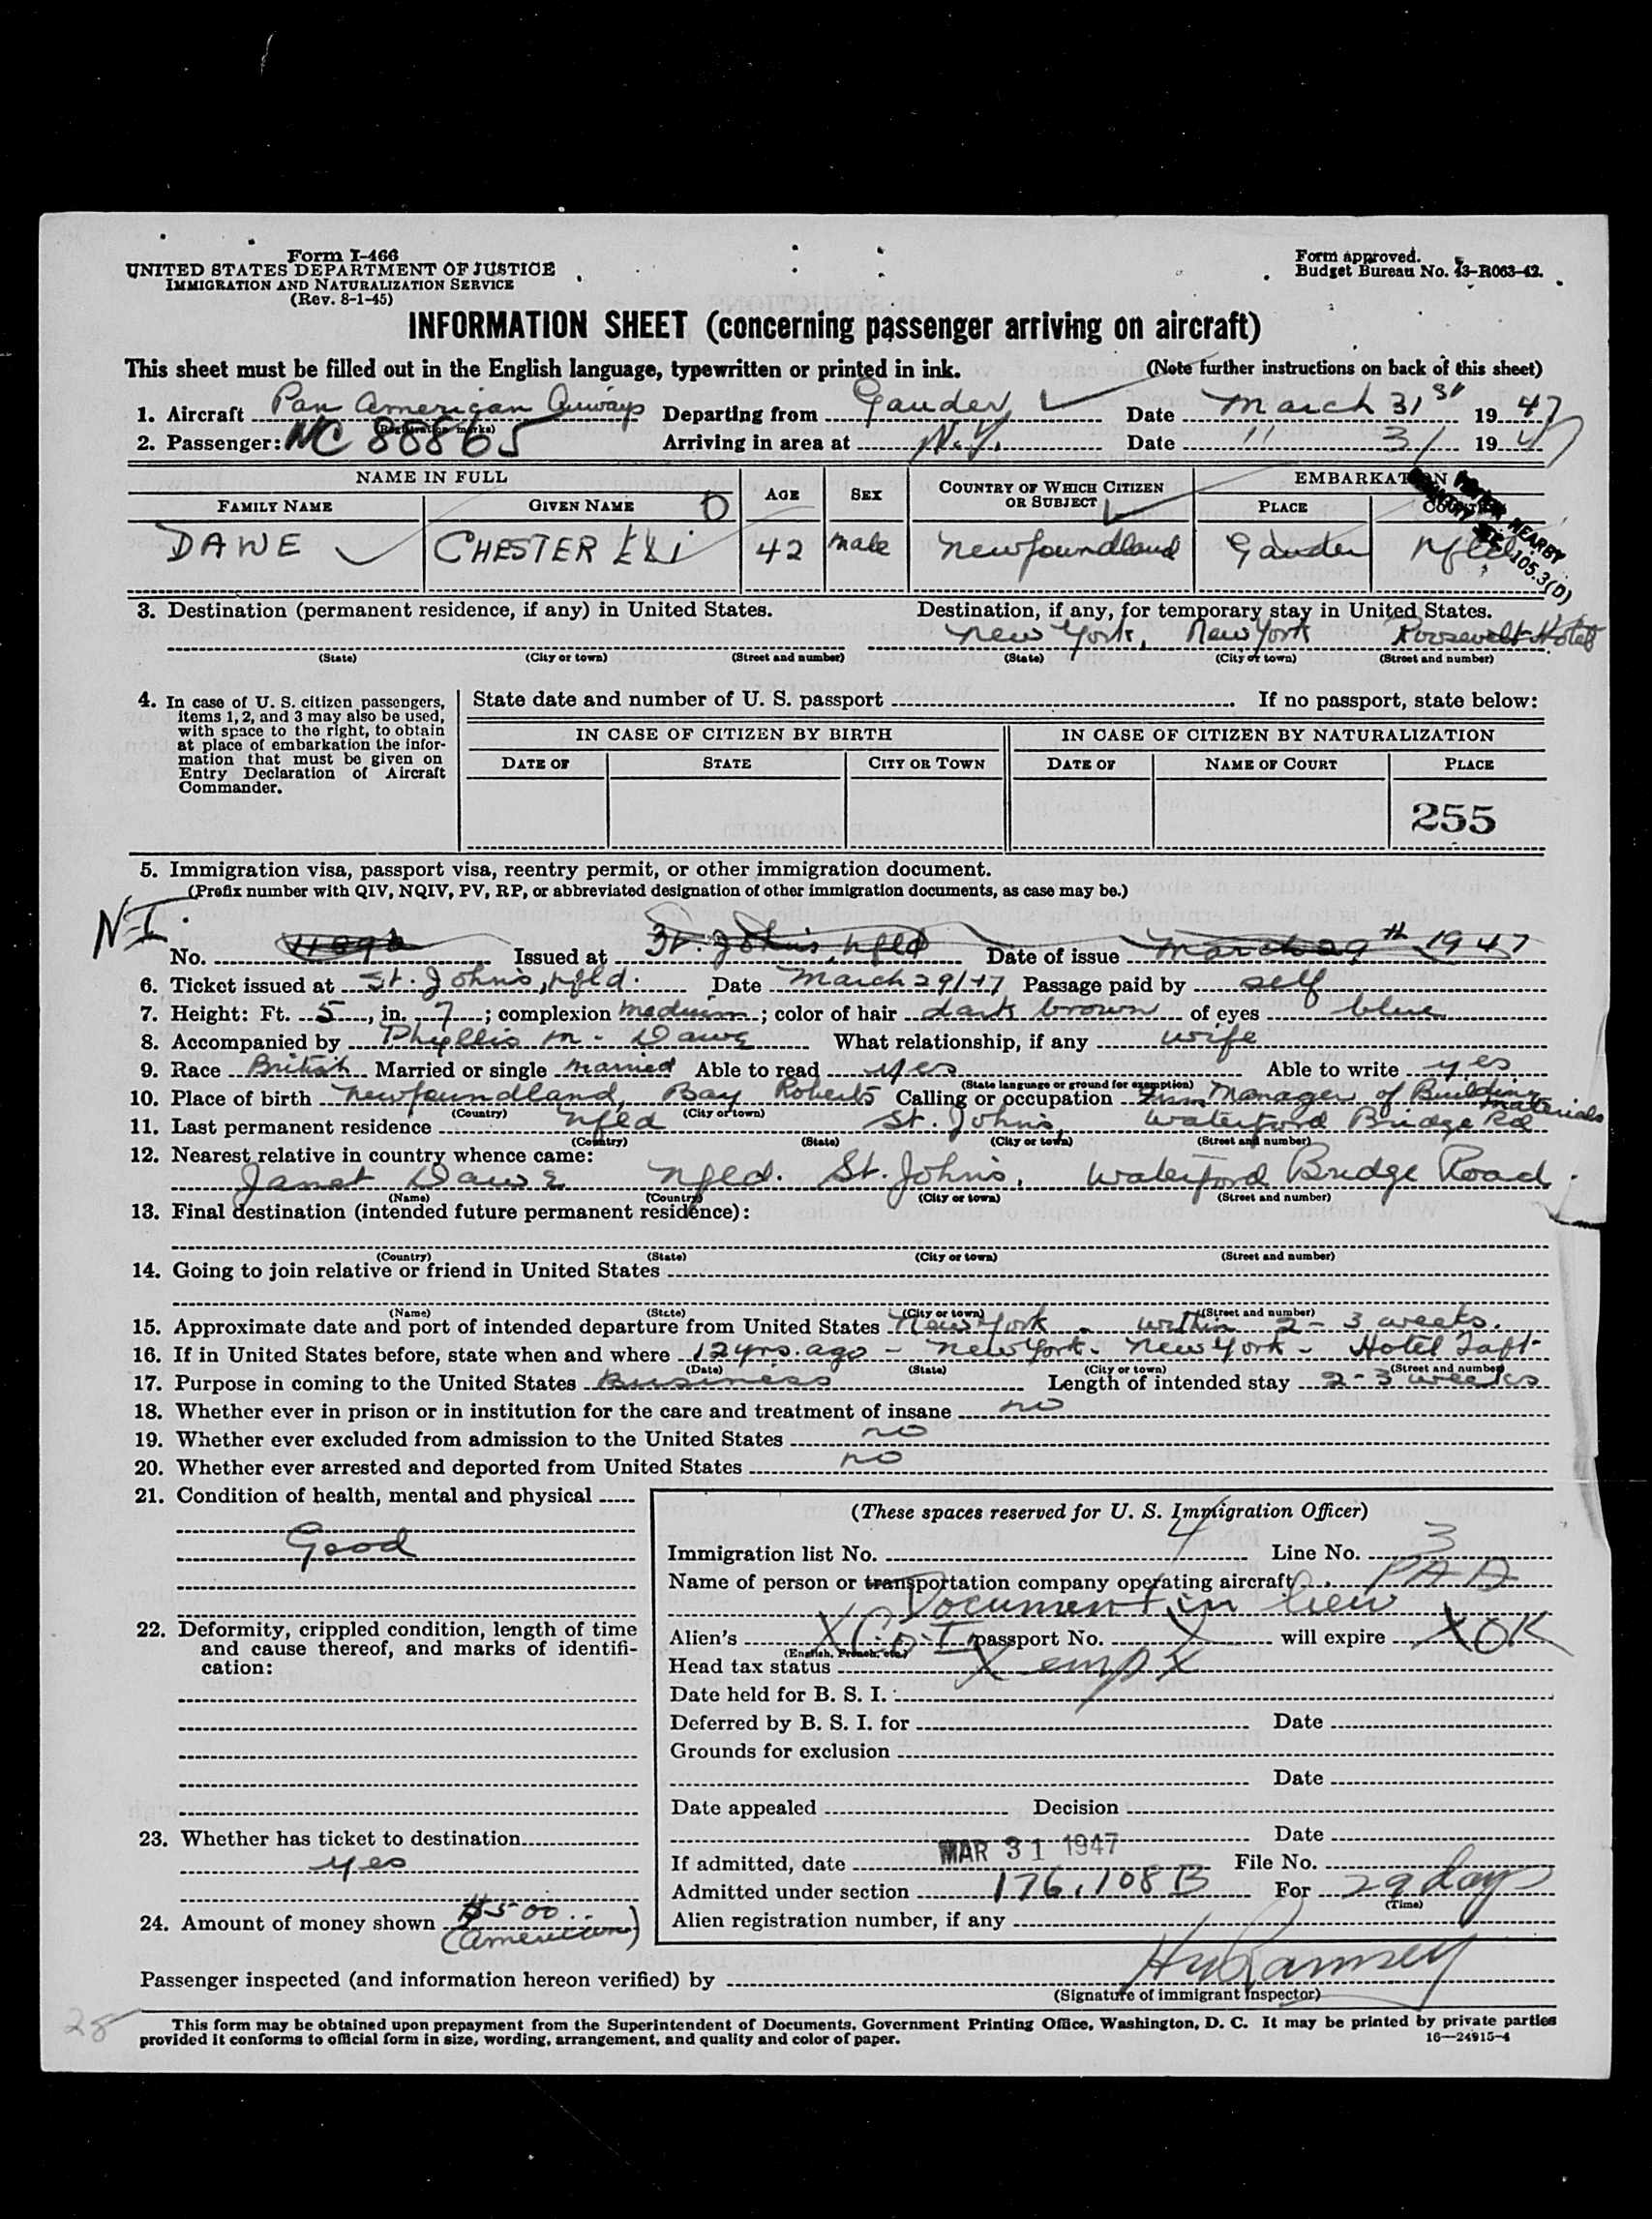 Form I-466
UNITED STATES DEPARTMENT OF JUSTICE
IMMIGRATION AND NATURALIZATION SERVICE
(Rev. 8-1-45)
Form approved.
Budget Bureau No. 43-R063-42.
INFORMATION SHEET (concerning passenger arriving on aircraft)
This sheet must be filled out in the English language, typewritten or printed in ink. (Note further instructions on back of this sheet)
1. Aircraft Pan American Airways Departing from Gander Date March 31st 1947
(Registration marks)
2. Passenger: NC 88865 Arriving in area at N.Y. Date " 31 1947
NAME IN FULL AGE SEX COUNTRY OF WHICH CITIZEN OR SUBJECT EMBARKATION
FAMILY NAME GIVEN NAME PLACE COUNTRY
NEARBY
105.3(D)
DAWE CHESTER ELI 42 male Newfoundland Gander Nfld
3. Destination (permanent residence, if any) in United States. Destination, if any, for temporary stay in United States.
New York, New York Roosevelt Hotel
(State) (City or town) (Street and number) (State) (City or town) (Street and number)
4. In case of U. S. citizen passengers, items 1, 2, and 3 may also be used, with space to the right, to obtain at place of embarkation the information that must be given on Entry Declaration of Aircraft Commander.
State date and number of U. S. passport If no passport, state below:
IN CASE OF CITIZEN BY BIRTH IN CASE OF CITIZEN BY NATURALIZATION
DATE OF STATE CITY OR TOWN DATE OF NAME OF COURT PLACE
255
5. Immigration visa, passport visa, reentry permit, or other immigration document.
(Prefix number with QIV, NQIV, PV, RP, or abbreviated designation of other immigration documents, as case may be.)
N-I
No. Issued at St. John's, Nfld Date of issue March 29th 1947
6. Ticket issued at St. John's, Nfld. Date March 29/47 Passage paid by self
7. Height: Ft. 5, in. 7; complexion medium; color of hair dark brown of eyes blue
8. Accompanied by Phyllis M. Dawe What relationship, if any wife
9. Race British Married or single married Able to read yes Able to write yes
(State language or ground for exemption)
10. Place of birth Newfoundland, Bay Roberts Calling or occupation Manager of Building Materials
(Country) (City or town)
11. Last permanent residence Nfld St. John's, Waterford Bridge Rd
(Country) (State) (City or town) (Street and number)
12. Nearest relative in country whence came:
Janet Dawe Nfld. St. John's, Waterford Bridge Road.
(Name) (Country) (City or town) (Street and number)
13. Final destination (intended future permanent residence):
(Country) (State) (City or town) (Street and number)
14. Going to join relative or friend in United States
(Name) (State) (City or town) (Street and number)
15. Approximate date and port of intended departure from United States New York - within 2-3 weeks.
16. If in United States before, state when and where 12 yrs. ago - New York - New York - Hotel Taft
(Date) (State) (City or town) (Street and number)
17. Purpose in coming to the United States Business Length of intended stay 2-3 weeks
18. Whether ever in prison or in institution for the care and treatment of insane no
19. Whether ever excluded from admission to the United States no
20. Whether ever arrested and deported from United States no
21. Condition of health, mental and physical
Good
22. Deformity, crippled condition, length of time and cause thereof, and marks of identification:
23. Whether has ticket to destination
yes
24. Amount of money shown $500..
(American)
(These spaces reserved for U. S. Immigration Officer)
Immigration list No. 4 Line No. 3
Name of person or transportation company operating aircraft PAA
Document in lieu
Alien's X C of I passport No. X will expire X OK
(English, French, etc.)
Head tax status X emp X
Date held for B. S. I.
Deferred by B. S. I. for Date
Grounds for exclusion
Date
Date appealed Decision
Date
If admitted, date MAR 31 1947 File No.
Admitted under section 176.108B For 29 days
(Time)
Alien registration number, if any
Passenger inspected (and information hereon verified) by Ramsey
(Signature of immigrant inspector)
25
This form may be obtained upon prepayment from the Superintendent of Documents, Government Printing Office, Washington, D. C. It may be printed by private parties
provided it conforms to official form in size, wording, arrangement, and quality and color of paper. 16—24915-4